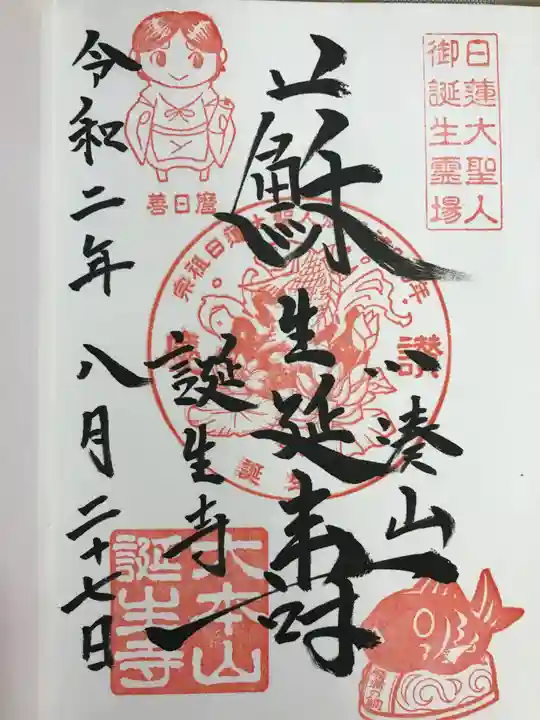 日蓮大聖人
御誕生霊場
小湊山
蘇生延寿
誕生寺
令和二年八月二十七日
善日麿
宗祖日蓮大聖人
年
讃
誕
大本山
誕生寺